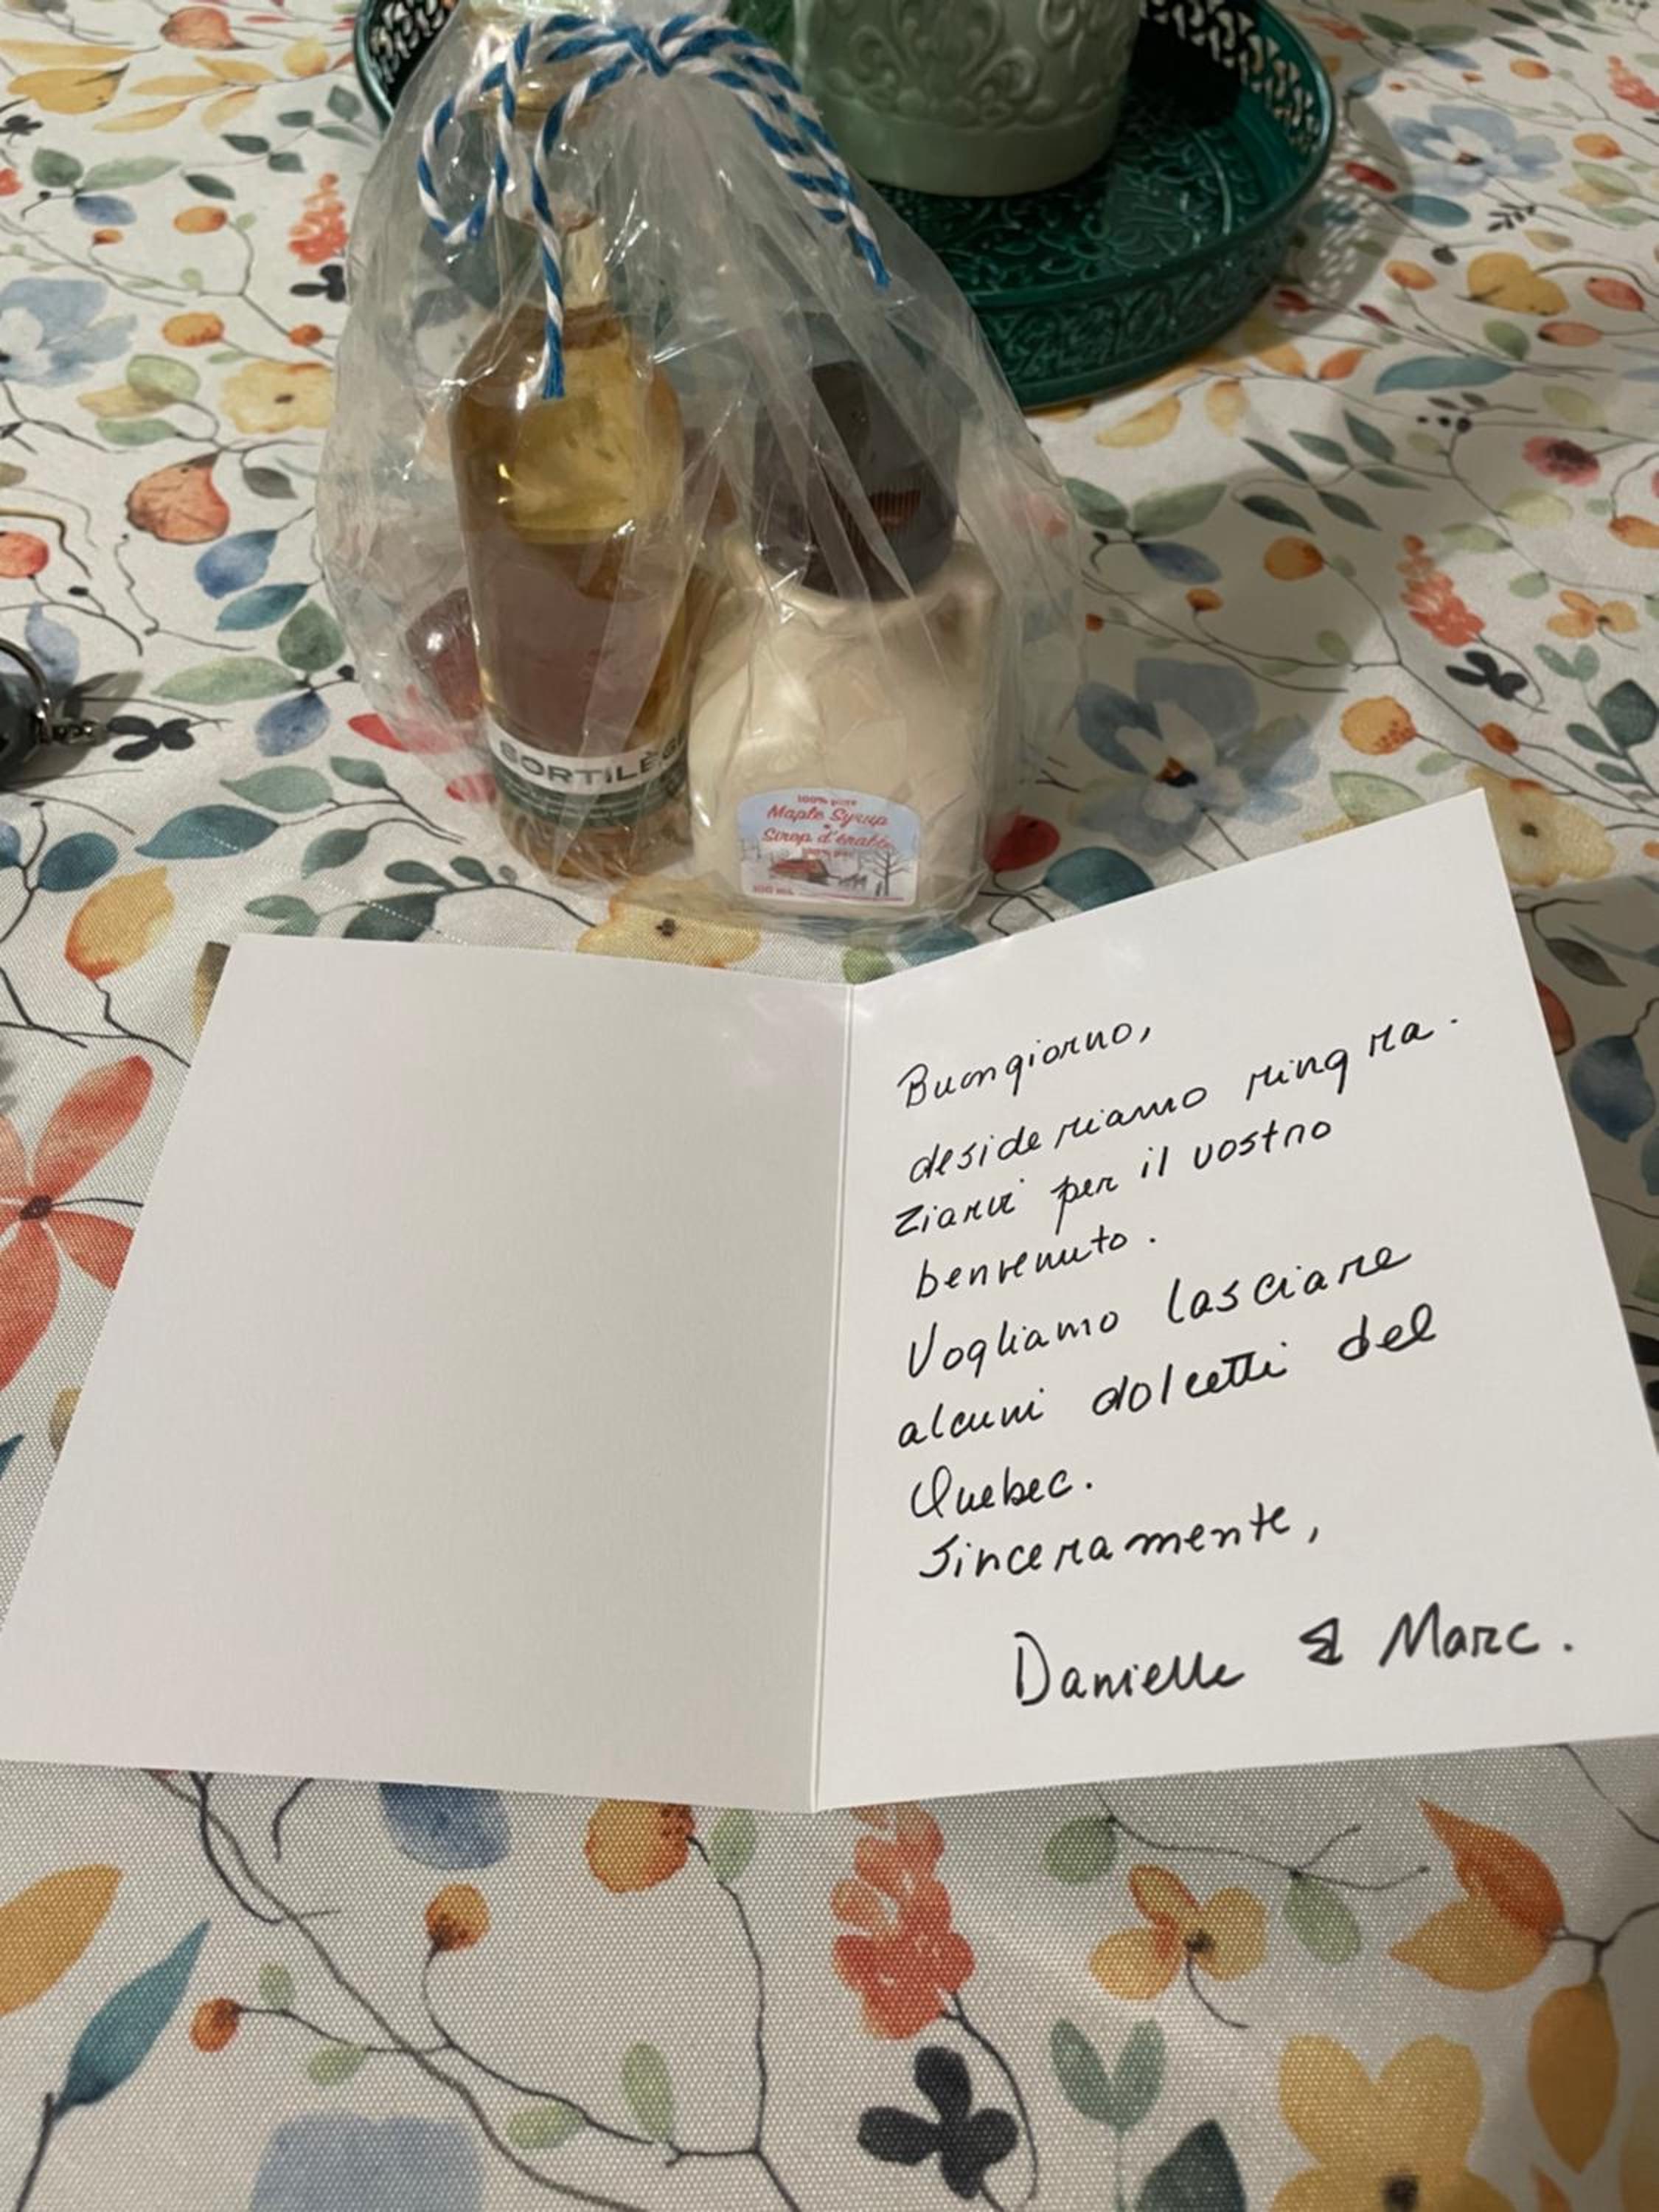 SORTILÈGE
100% pure
Maple Syrup
Sirop d'érable
100% pur
100 mL
Buongiorno,
desideriamo ringra-
ziarvi per il vostro
benvenuto.
Vogliamo lasciare
alcuni dolcetti del
Quebec.
Sinceramente,
Danielle & Marc.